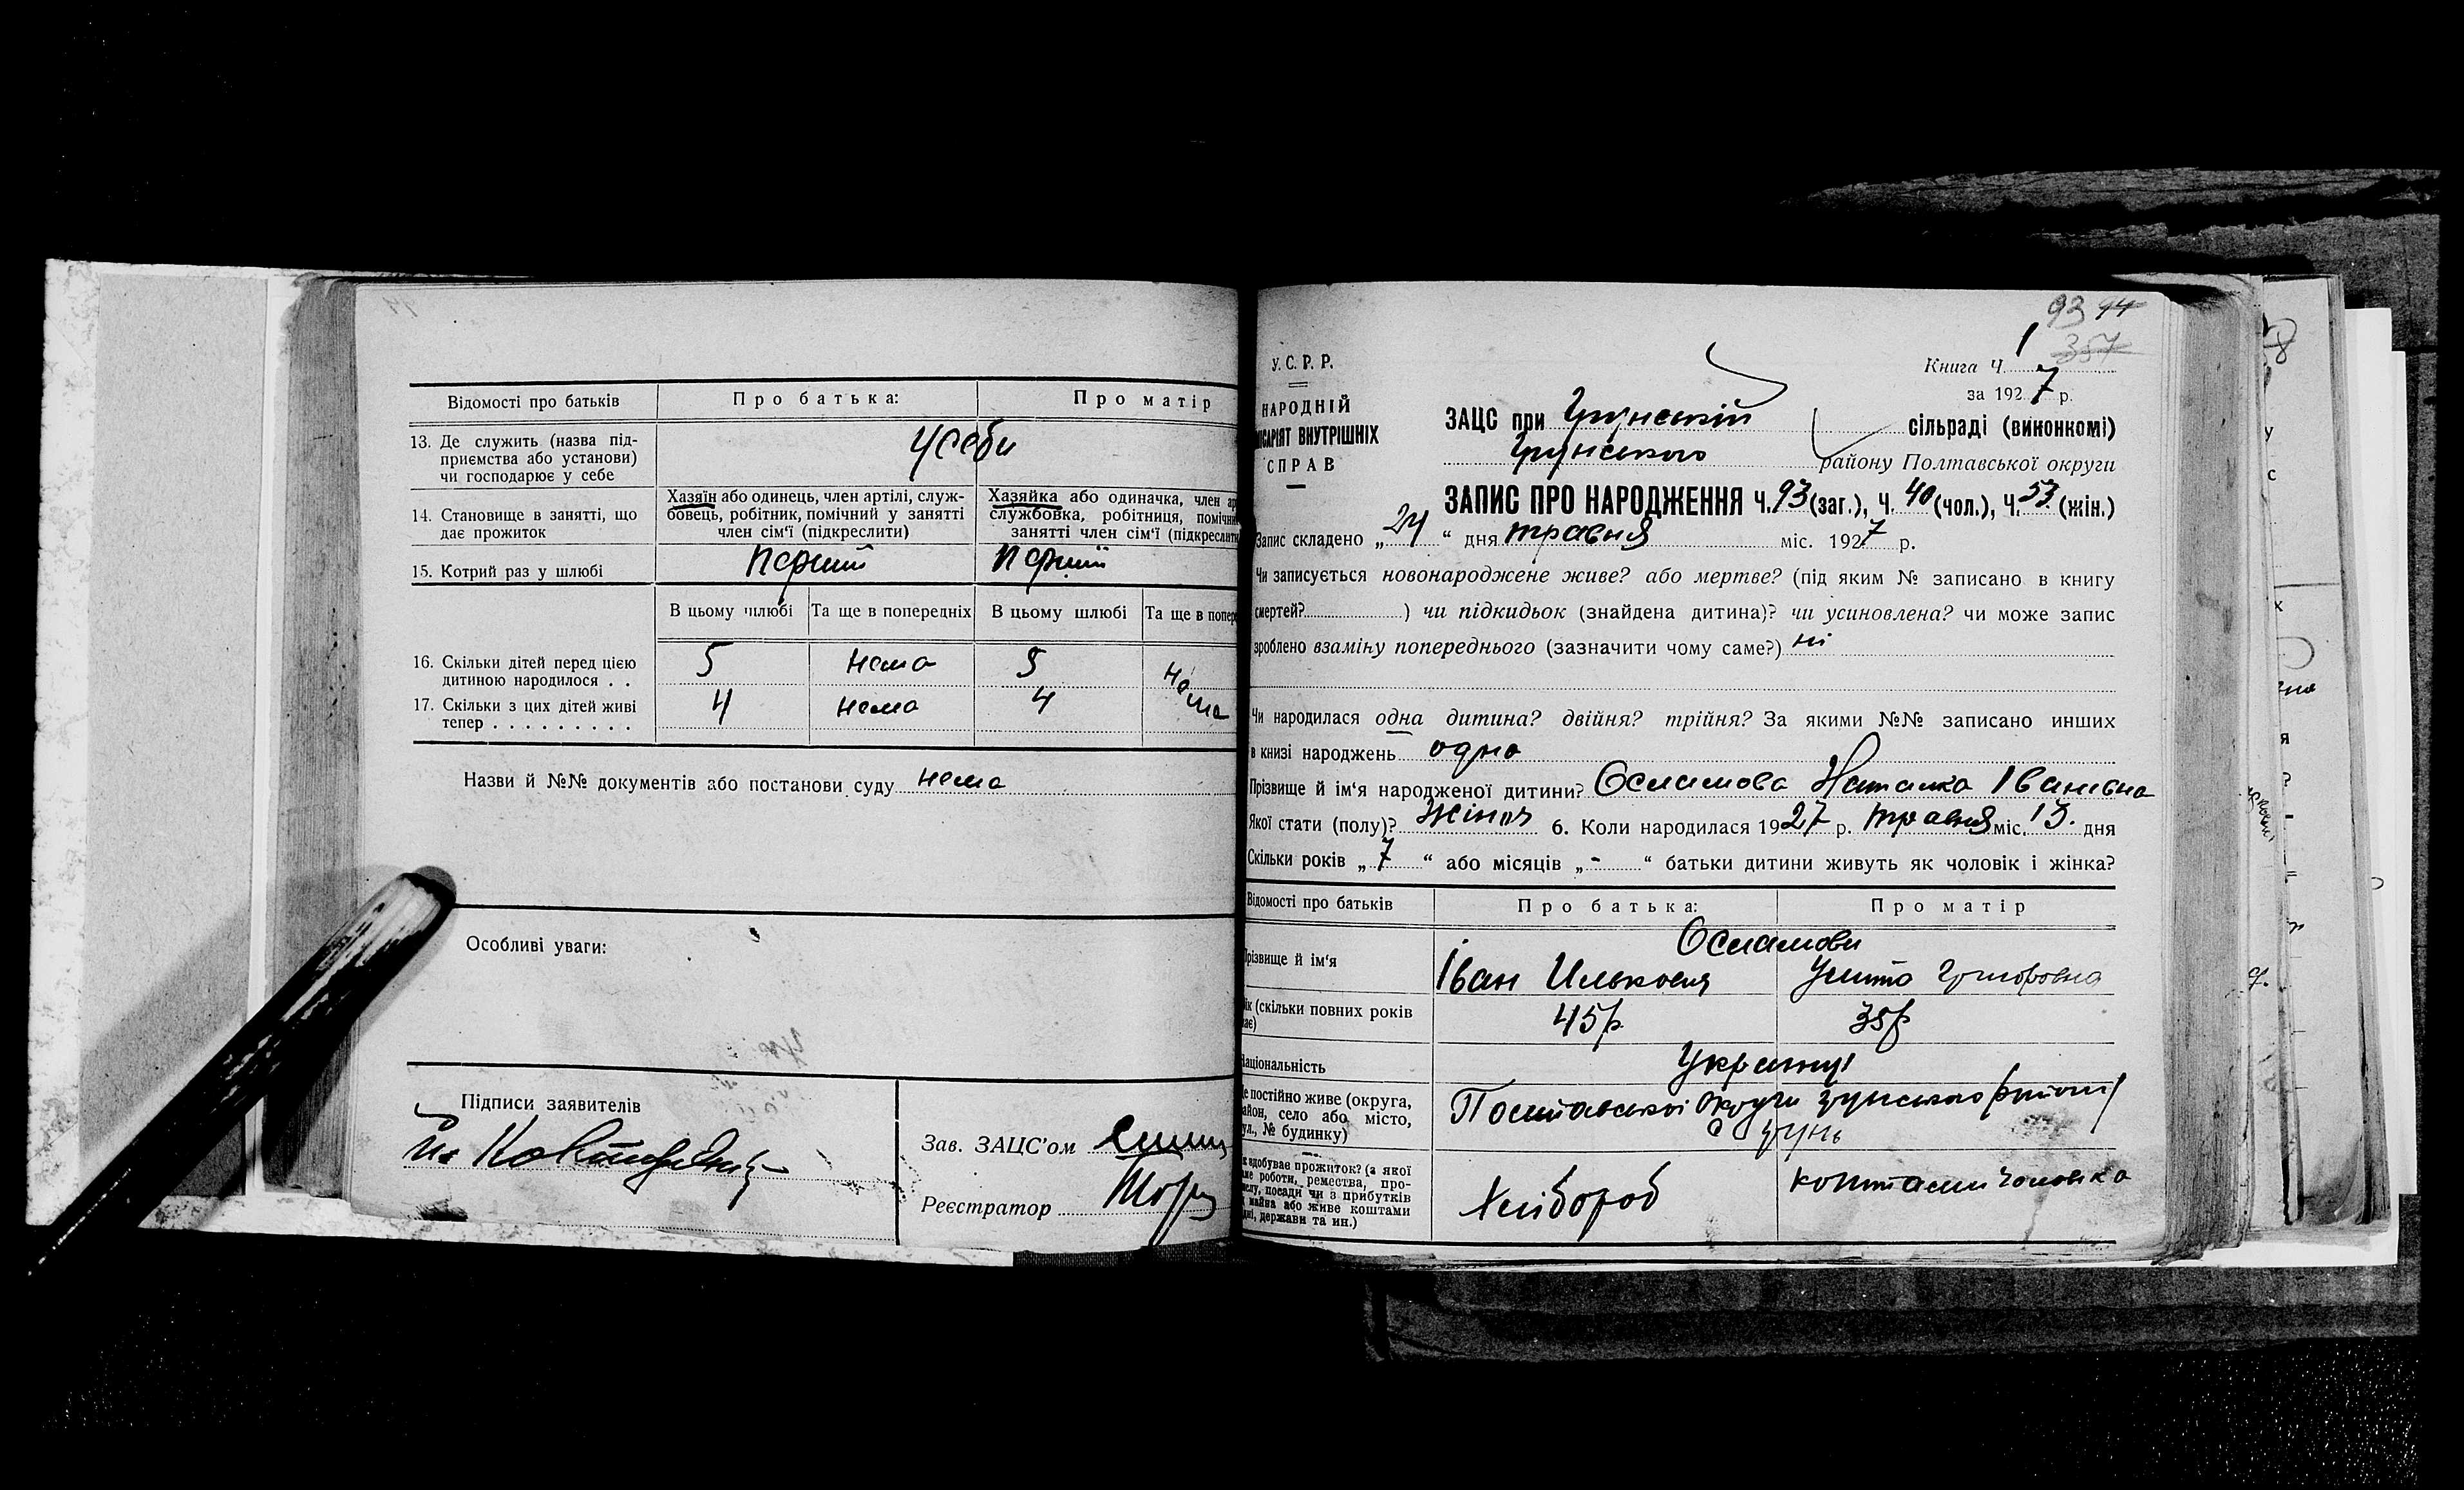 Відомості про батьків
Про батька:
Про матір
13. Де служить (назва під-
приємства або установи)
чи господарює у себе
у себи
14. Становище в занятті, що
дає прожиток
Хазяїн або одинець, член артілі, служ-
бовець, робітник, помічний у занятті
член сім'ї (підкреслити)
Хазяйка або одиначка, член ар
службовка, робітниця, помічни
занятті член сім'ї (підкреслити
15. Котрий раз у шлюбі
перший
перший
В цьому шлюбі
Та ще в попередніх
В цьому шлюбі
Та ще в попере
16. Скільки дітей перед цією
дитиною народилося . .
5
нема
5
нема
17. Скільки з цих дітей живі
тепер . . . . . . . . .
4
нема
4
Назви й №№ документів або постанови суду нема
Особливі уваги:
Підписи заявителів
Зав. ЗАЦС'ом
Реєстратор
93 94
357
У.С.Р.Р.
НАРОДНІЙ
ІСАРІЯТ ВНУТРІШНІХ
СПРАВ
Книга Ч. 1
за 1927 р.
ЗАЦС при Грунській сільраді (виконкомі)
Грунського району Полтавської округи
ЗАПИС ПРО НАРОДЖЕННЯ Ч. 93 (заг.), Ч. 40 (чол.), Ч. 53 (жін.)
Запис складено „24“ дня травня міс. 1927 р.
Чи записується новонароджене живе? або мертве? (під яким № записано в книгу
смертей?) чи підкидьок (знайдена дитина)? чи усиновлена? чи може запис
зроблено взаміну попереднього (зазначити чому саме?) ні
Чи народилася одна дитина? двійня? трійня? За якими №№ записано инших
в книзі народжень одна
Прізвище й ім'я народженої дитини? Осламова Наталка Іванівна
Якої стати (полу)? Жіноч 6. Коли народилася 1927 р. травня міс. 13. дня
Скільки років „7“ або місяців „-“ батьки дитини живуть як чоловік і жінка?
Відомості про батьків
Про батька:
Про матір
Прізвище й ім'я
Осламови
Іван Илькович
Улита Григоровна
ік (скільки повних років
ає)
45р
35р
Національність
Українці
е постійно живе (округа,
айон, село або місто,
ул., № будинку)
Полтавської округи Грунського району
с Грунь
к здобуває прожиток? (з якої
аме роботи, ремества, про-
ислу, посади чи з прибутків
майна або живе коштами
дні, держави та ин.)
Хлібороб
коштами чоловіка